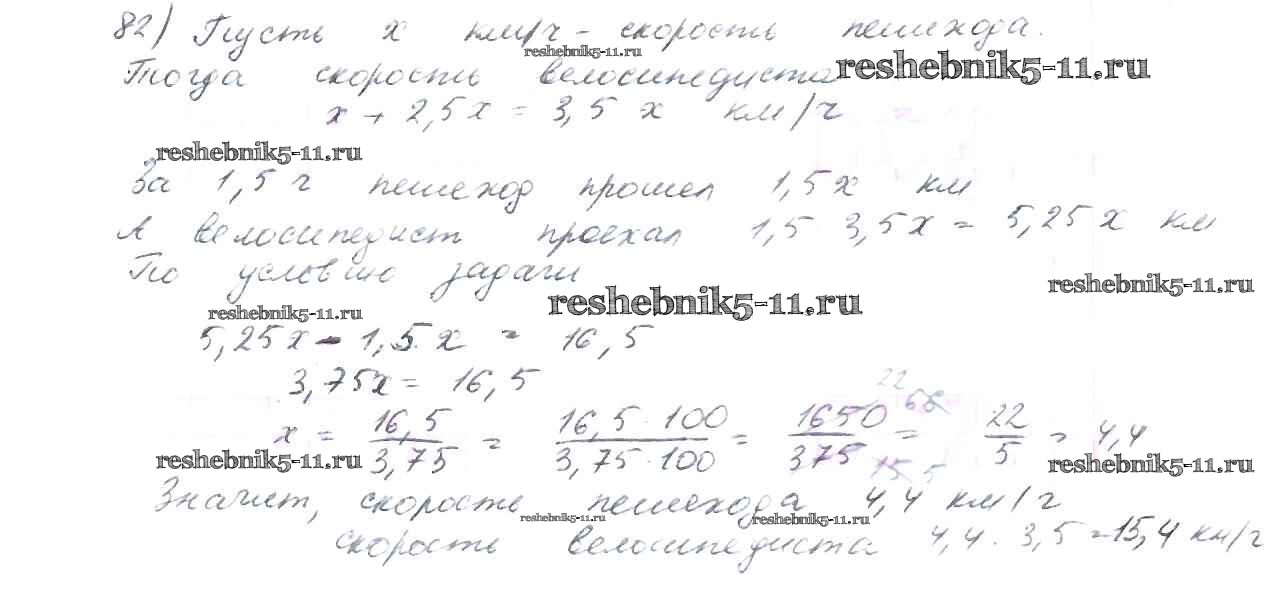 82) Пусть х км/ч - скорость пешехода.
reshebnik5-11.ru
Тогда скорость велосипедиста
reshebnik5-11.ru
х + 2,5х = 3,5 х км/ч
reshebnik5-11.ru
За 1,5 ч пешеход прошел 1,5х км
А велосипедист проехал 1,5 · 3,5х = 5,25х км
По условию задачи
reshebnik5-11.ru
reshebnik5-11.ru
reshebnik5-11.ru
5,25х - 1,5 х = 16,5
3,75х = 16,5
22 66
х = 16,5/3,75 = 16,5·100/3,75·100 = 1650/375 = 22/5 = 4,4
15 5
reshebnik5-11.ru
reshebnik5-11.ru
Значит, скорость пешехода 4,4 км/ч
reshebnik5-11.ru
reshebnik5-11.ru
скорость велосипедиста 4,4 · 3,5 = 15,4 км/ч